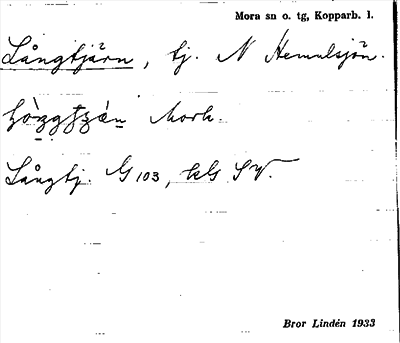 Mora sn o. tg, Kopparb. l.
Långtjärn, tj. N Hemulsjön.
Mork.
Långtj. G 103, kls SV.
Bror Lindén 1933